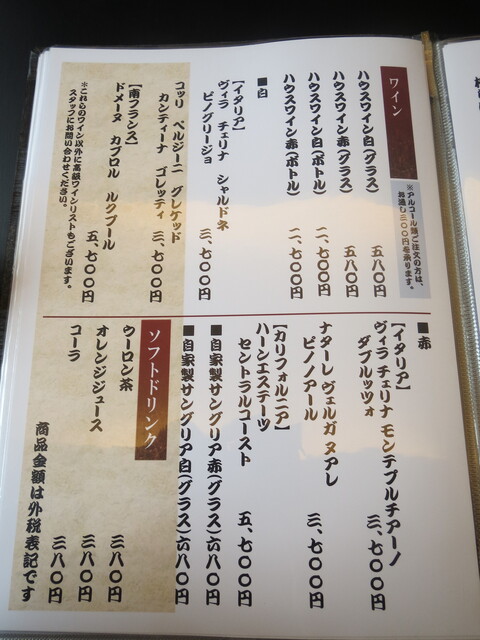 ワイン
※アルコール類ご注文の方は、
お通し三〇〇円を承ります。
ハウスワイン白(グラス) 五八〇円
ハウスワイン赤(グラス) 五八〇円
ハウスワイン白(ボトル) 二、七〇〇円
ハウスワイン赤(ボトル) 二、七〇〇円
■白
【イタリア】
ヴィラ チェリナ シャルドネ
ピノグリージョ 三、七〇〇円
コッリ ペルジーニ グレケット
カンティーナ ゴレッティ 三、七〇〇円
【南フランス】
ドメーヌ カブロル ルクプール
五、七〇〇円
※これらのワイン以外に高級ワインリストもございます。
スタッフにお問い合わせください。
■赤
【イタリア】
ヴィラ チェリナ モンテプルチアーノ
ダブルッツォ 三、七〇〇円
ナターレ ヴェルガ ヌアレ
ピノノアール 三、七〇〇円
【カリフォルニア】
ハーンエステーツ
セントラルコースト 五、七〇〇円
■自家製サングリア赤(グラス)六八〇円
■自家製サングリア白(グラス)六八〇円
ソフトドリンク
ウーロン茶 三八〇円
オレンジジュース 三八〇円
コーラ 三八〇円
商品金額は外税表記です